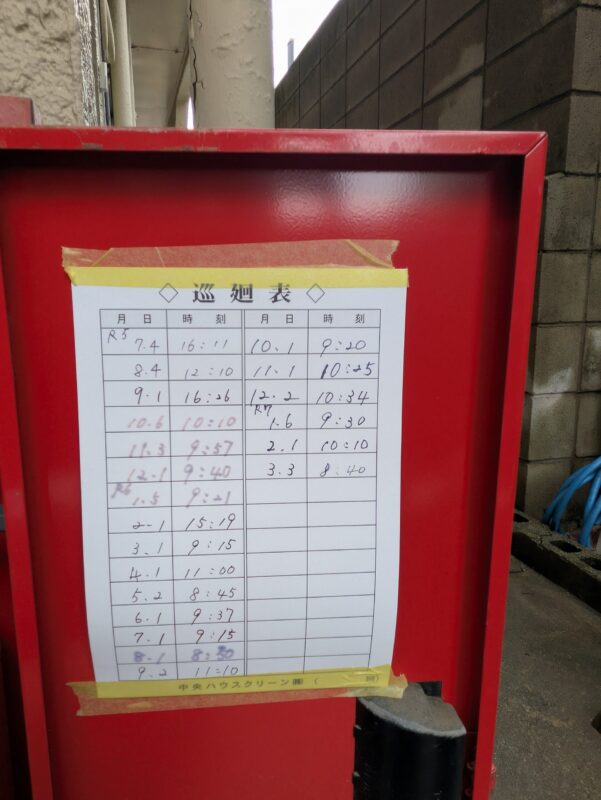 ◇ 巡廻表 ◇
月 日 時 刻 月 日 時 刻
R5 7.4 16:11 10.1 9:20
8.4 12:10 11.1 10:25
9.1 16:26 12.2 10:34
10.6 10:10 R7 1.6 9:30
11.3 9:57 2.1 10:10
12.1 9:40 3.3 8:40
R6 1.5 9:21
2.1 15:19
3.1 9:15
4.1 11:00
5.2 8:45
6.1 9:37
7.1 9:15
8.1 8:30
9.2 11:10
中央ハウスクリーン㈱ ( 回)